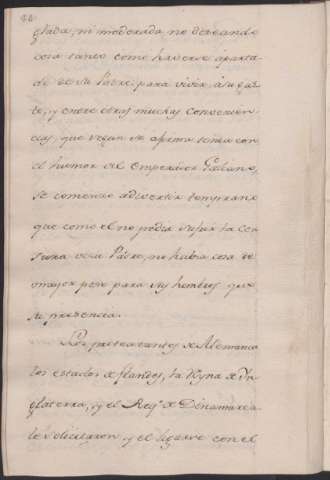 glada, ni moderada, no deseando
cosa tanto como haverse aparta-
do de su Padre, para vivir, à su gus
to, y entre otras muchas convenien-
cias, que segun se afirma tenia con
el humor del Emperador
se comenzo advertir temprano
que como el no podia sufrir la cen
sura de su Padre, no habia cosa de
mayor peso para sus hombros, que
su presencia.
Los protestantes de Alemania
los estados de flandes, la Reyna de In
glaterra, y el Rey de Dinamarca
le solicitaron, y el ligarse con el